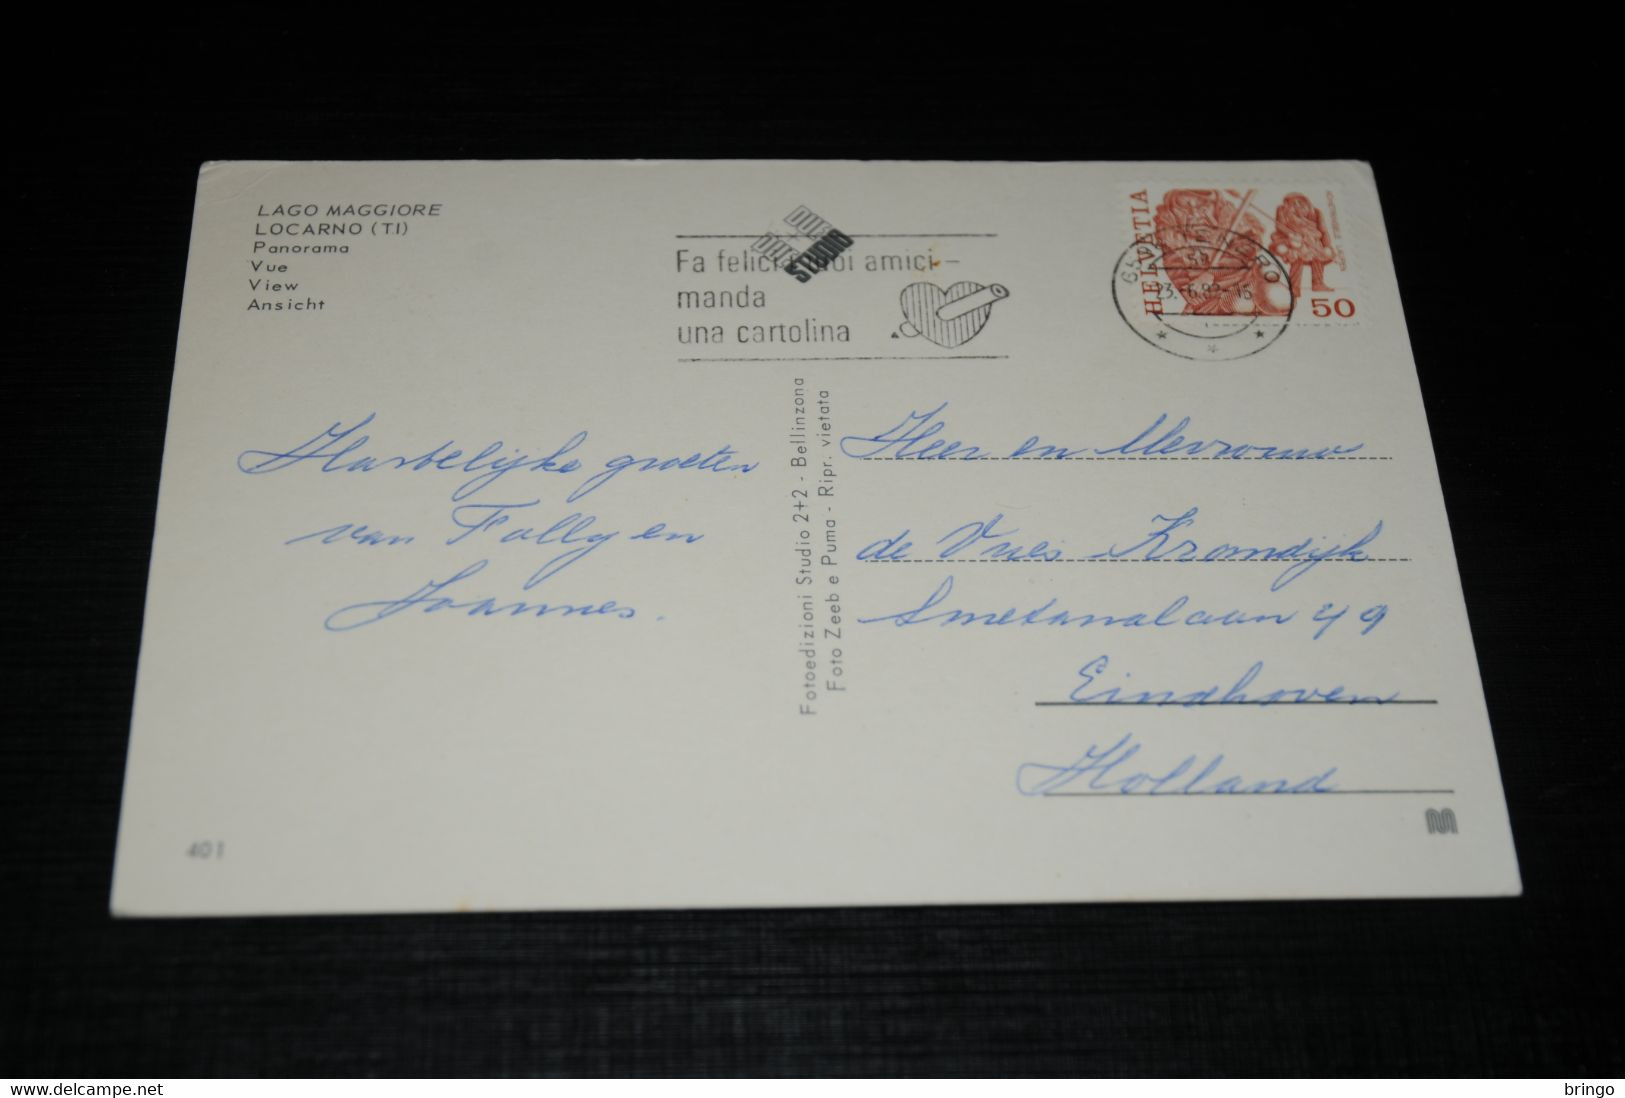 LAGO MAGGIORE
LOCARNO (TI)
Panorama
Vue
View
Ansicht
STUDIO
Fa felici i tuoi amici -
manda
una cartolina
HELVETIA
50
23.-6.82-15
Hartelijke groeten
van Folly en
Joannes.
Fotoedizioni Studio 2+2 - Bellinzona
Foto Zeeb e Puma - Ripr. vietata
Heer en Mevrouw
de Vries Kromdijk
Smetanalaan 49
Eindhoven
Holland
401
bringo